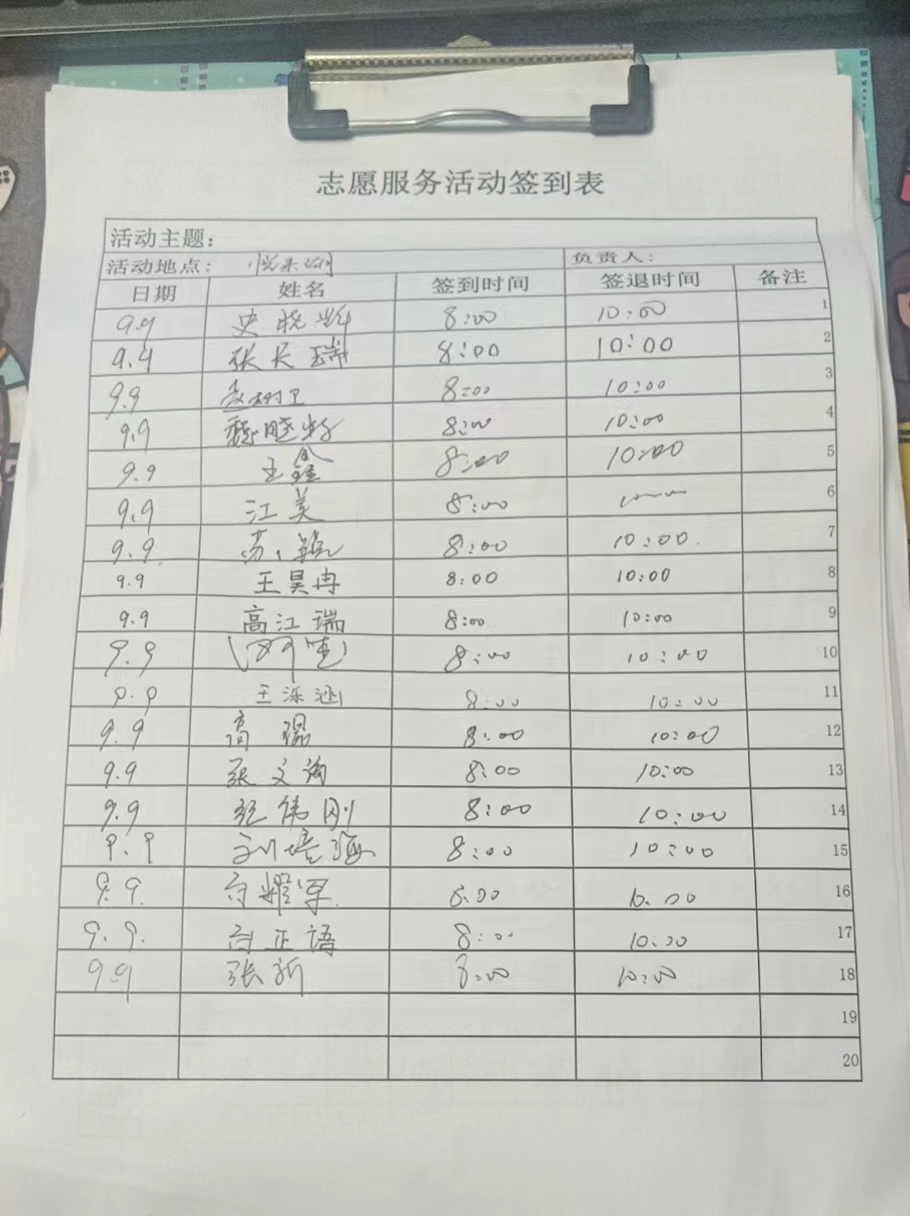 志愿服务活动签到表
活动主题：
活动地点： 负责人：
日期 姓名 签到时间 签退时间 备注
9.9 史晓辉 8:00 10:00 1
9.9 张长瑞 8:00 10:00 2
9.9 8:00 10:00 3
9.9 魏晓 8:00 10:00 4
9.9 王鑫 8:00 10:00 5
9.9 江美 8:00 6
9.9 苏 8:00 10:00 7
9.9 王昊冉 8:00 10:00 8
9.9 高江瑞 8:00 10:00 9
9.9 8:00 10:00 10
9.9 王泺涵 8:00 10:00 11
9.9 高琨 8:00 10:00 12
9.9 张文 8:00 10:00 13
9.9 伟刚 8:00 10:00 14
9.9 刘培海 8:00 10:00 15
9.9 8.00 10.00 16
9.9. 正语 8:00 10:00 17
9.9 张新 8:00 10:00 18
19
20